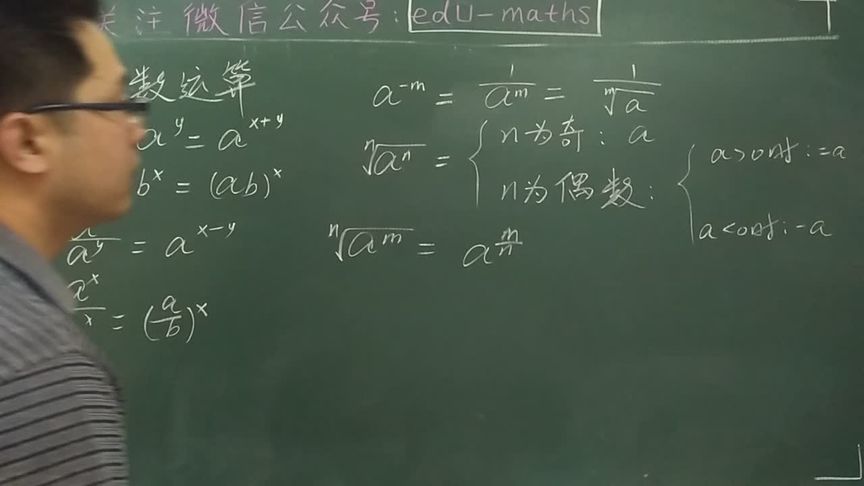 关注微信公众号:edU-maths
数运算
a^y = a^{x+y}
b^x = (ab)^x
/a^y = a^{x-y}
a^x/^x = (a/b)^x
a^{-m} = 1/a^m = 1/\sqrt[m]{a}
\sqrt[n]{a^n} = { n为奇: a
n为偶数: { a>0时:=a
a<0时:-a
\sqrt[n]{a^m} = a^{m/n}